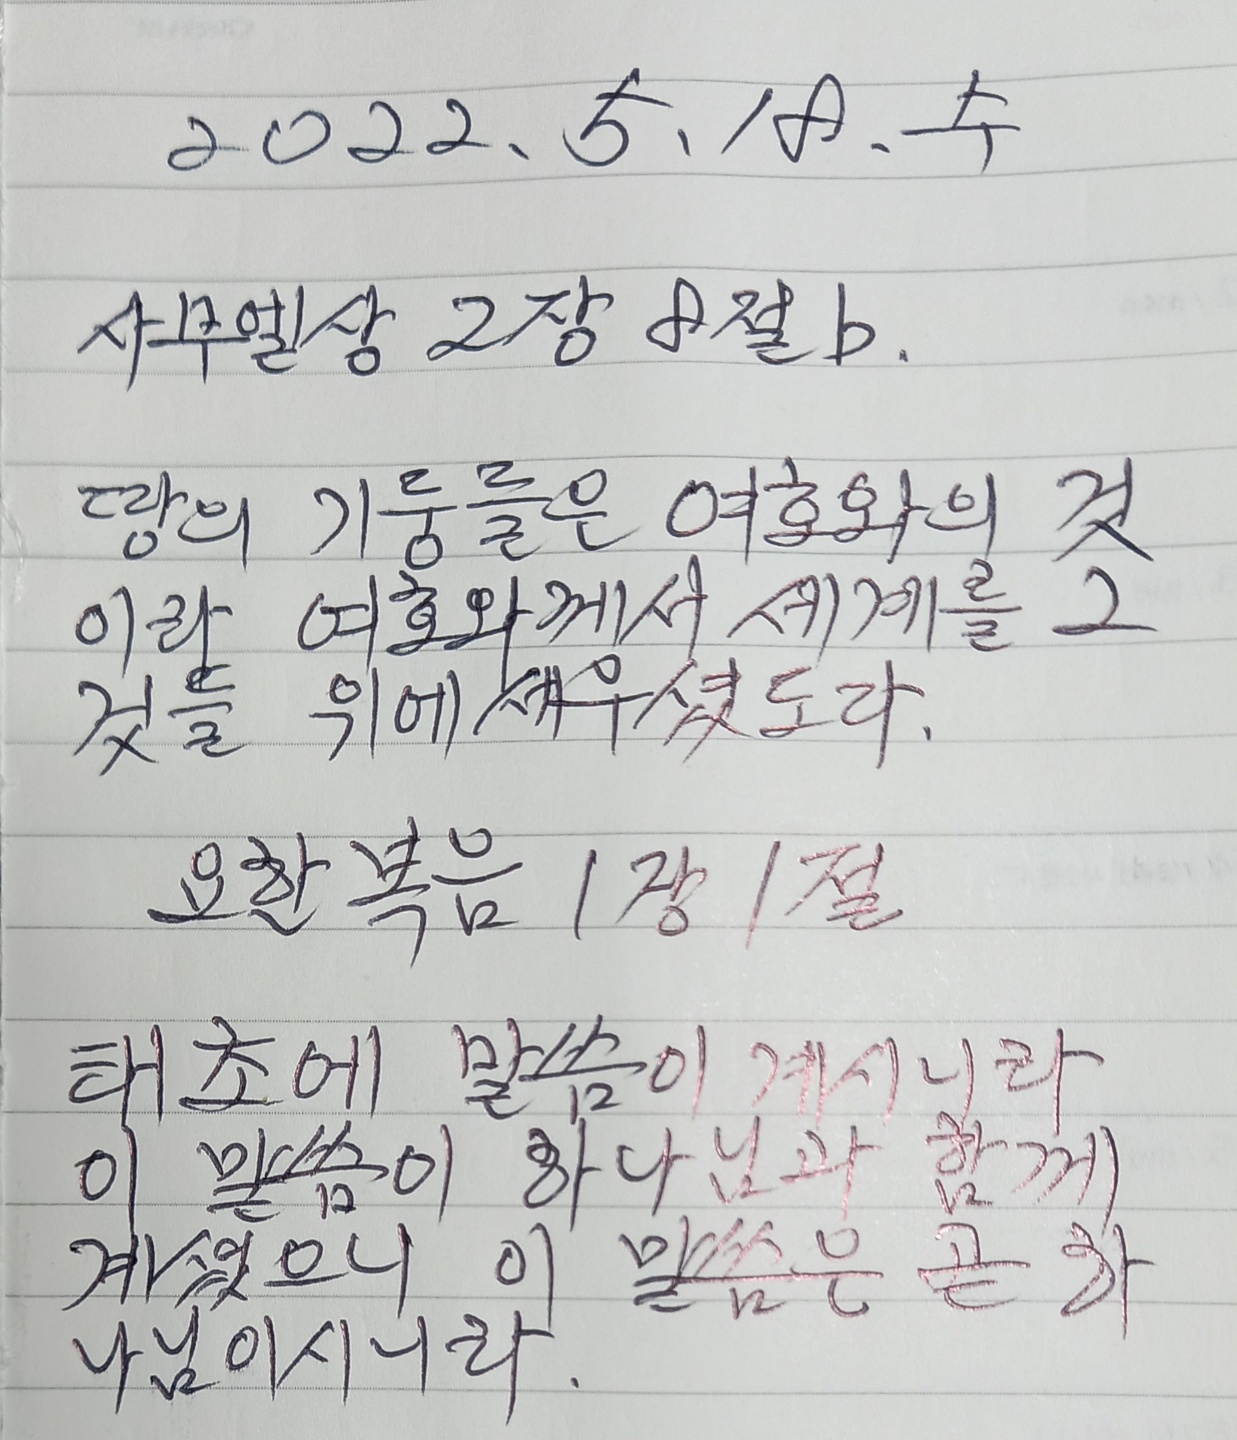 2022. 5. 18. 수
사무엘상 2장 8절 b.
땅의 기둥들은 여호와의 것
이라 여호와께서 세계를 그
것들 위에 세우셨도다.
요한복음 1장 1절
태초에 말씀이 계시니라
이 말씀이 하나님과 함께
계셨으니 이 말씀은 곧 하
나님이시니라.